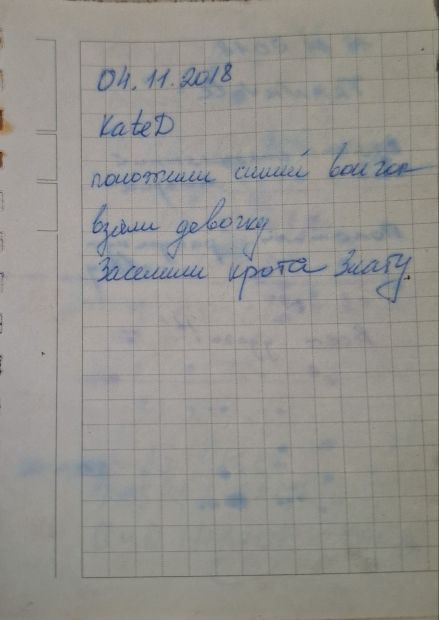 04.11.2018
KateD
положили синий вагон
взяли девочку
Заселили крота Злату.